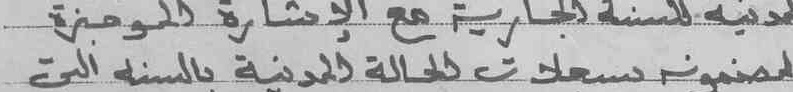 المدنية للسنة الجارية مع الإشارة الموجزة
لمضمونه بسجلات الحالة المدنية بالسنة التي